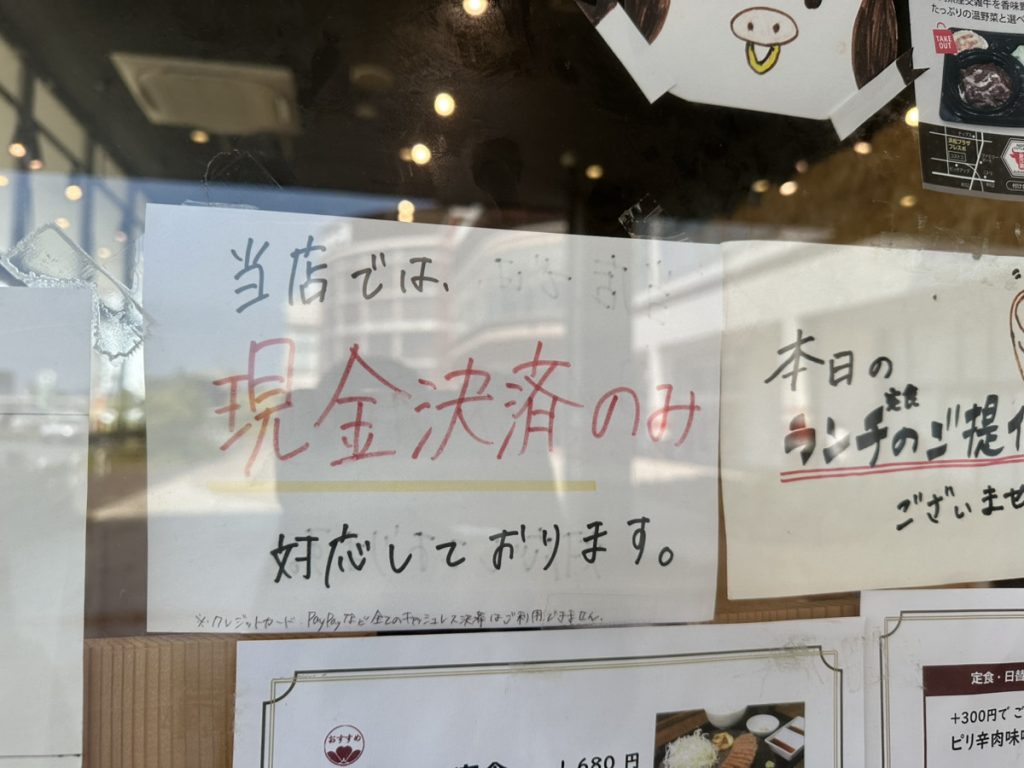 当店では、
現金決済のみ
対応しております。
※クレジットカード、PayPayなど全てのキャッシュレス決済はご利用できません。
本日の
定食
ランチのご提
ございませ
たっぷりの温野菜と選べ
TAKE
OUT
おすすめ
1,680円
定食・日替
+300円で ご
ピリ辛肉味